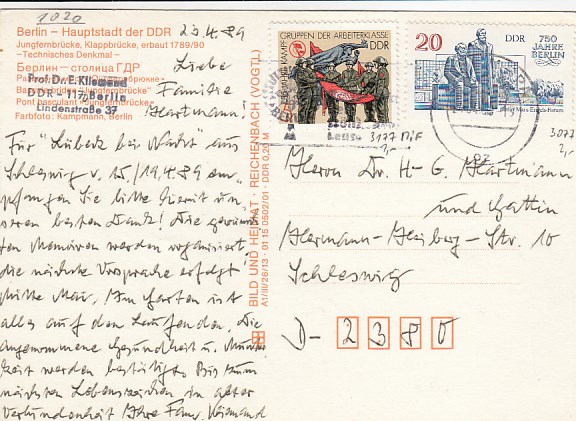 1020
Berlin – Hauptstadt der DDR
Jungfernbrücke, Klappbrücke, erbaut 1789/90
–Technisches Denkmal–
Берлин — столица ГДР
"Jungfernbrücke"
Pont basculant "Jungfernbrücke"
Farbfoto: Kampmann, Berlin
Prof. Dr. E. Kliemand
DDR - 1170 Berlin
Lindenstraße 37
20.4.89
Liebe
Familie
Hartmann!
Für "Lübeck bei Nacht" aus
Schleswig v. 15./19.4.89 em-
pfangen Sie bitte hiermit un-
seren besten Dank! Die gewünsch-
ten Memoiren werden organisiert,
die nächste Vorsprache erfolgt
Mitte Mai. Im Garten ist
alles auf dem Laufenden. Die
angenommene Gesundheit u. Munter-
keit werden bestätigt. Bis zum
nächsten Lebenszeichen in alter
Verbundenheit Ihre Fam. Kliemand
BILD UND HEIMAT · REICHENBACH (VOGTL)
A1/III/26/13 · 01 15 0502/01 · DDR 0,20 M
KAMPFGRUPPEN DER ARBEITERKLASSE
DDR
20
DDR
750
JAHRE
BERLIN
Marx-Engels-Forum
3177 MiF
2,-
3077
2,-
Herrn Dr. H-G. Hartmann
und Gattin
Hermann-Heiberg-Str. 10
Schleswig
D- 2380